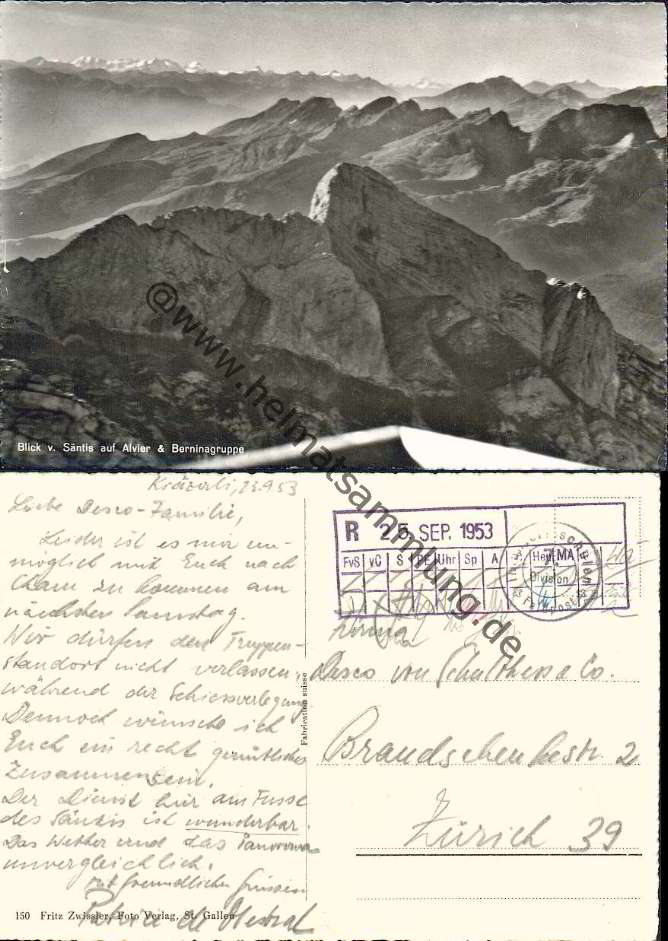 Blick v. Säntis auf Alvier & Berninagruppe
@www.heimatsammlung.de
Kräzerli, 23.9.53
Liebe Desco-Familie,
Leider ist es mir un-
möglich mit Euch nach
Cham zu kommen am
nächsten Samstag.
Wir dürfen den Truppen-
standort nicht verlassen
während der Schiessverlegung
Dennoch wünsche ich
Euch ein recht gemütliches
Zusammensein.
Der Dienst hier am Fusse
des Säntis ist wunderbar.
Das Wetter und das Panorama
unvergleichlich.
mit freundlichen Grüssen
150 Fritz Zwissler, Foto Verlag, St. Gallen
Fabrication suisse
R 25. SEP. 1953
FvS vC S Uhr Sp A
Division
Feldpost
Firma
Desco von Schulthess & Co.
Brandschenkestr. 2
Zürich 39